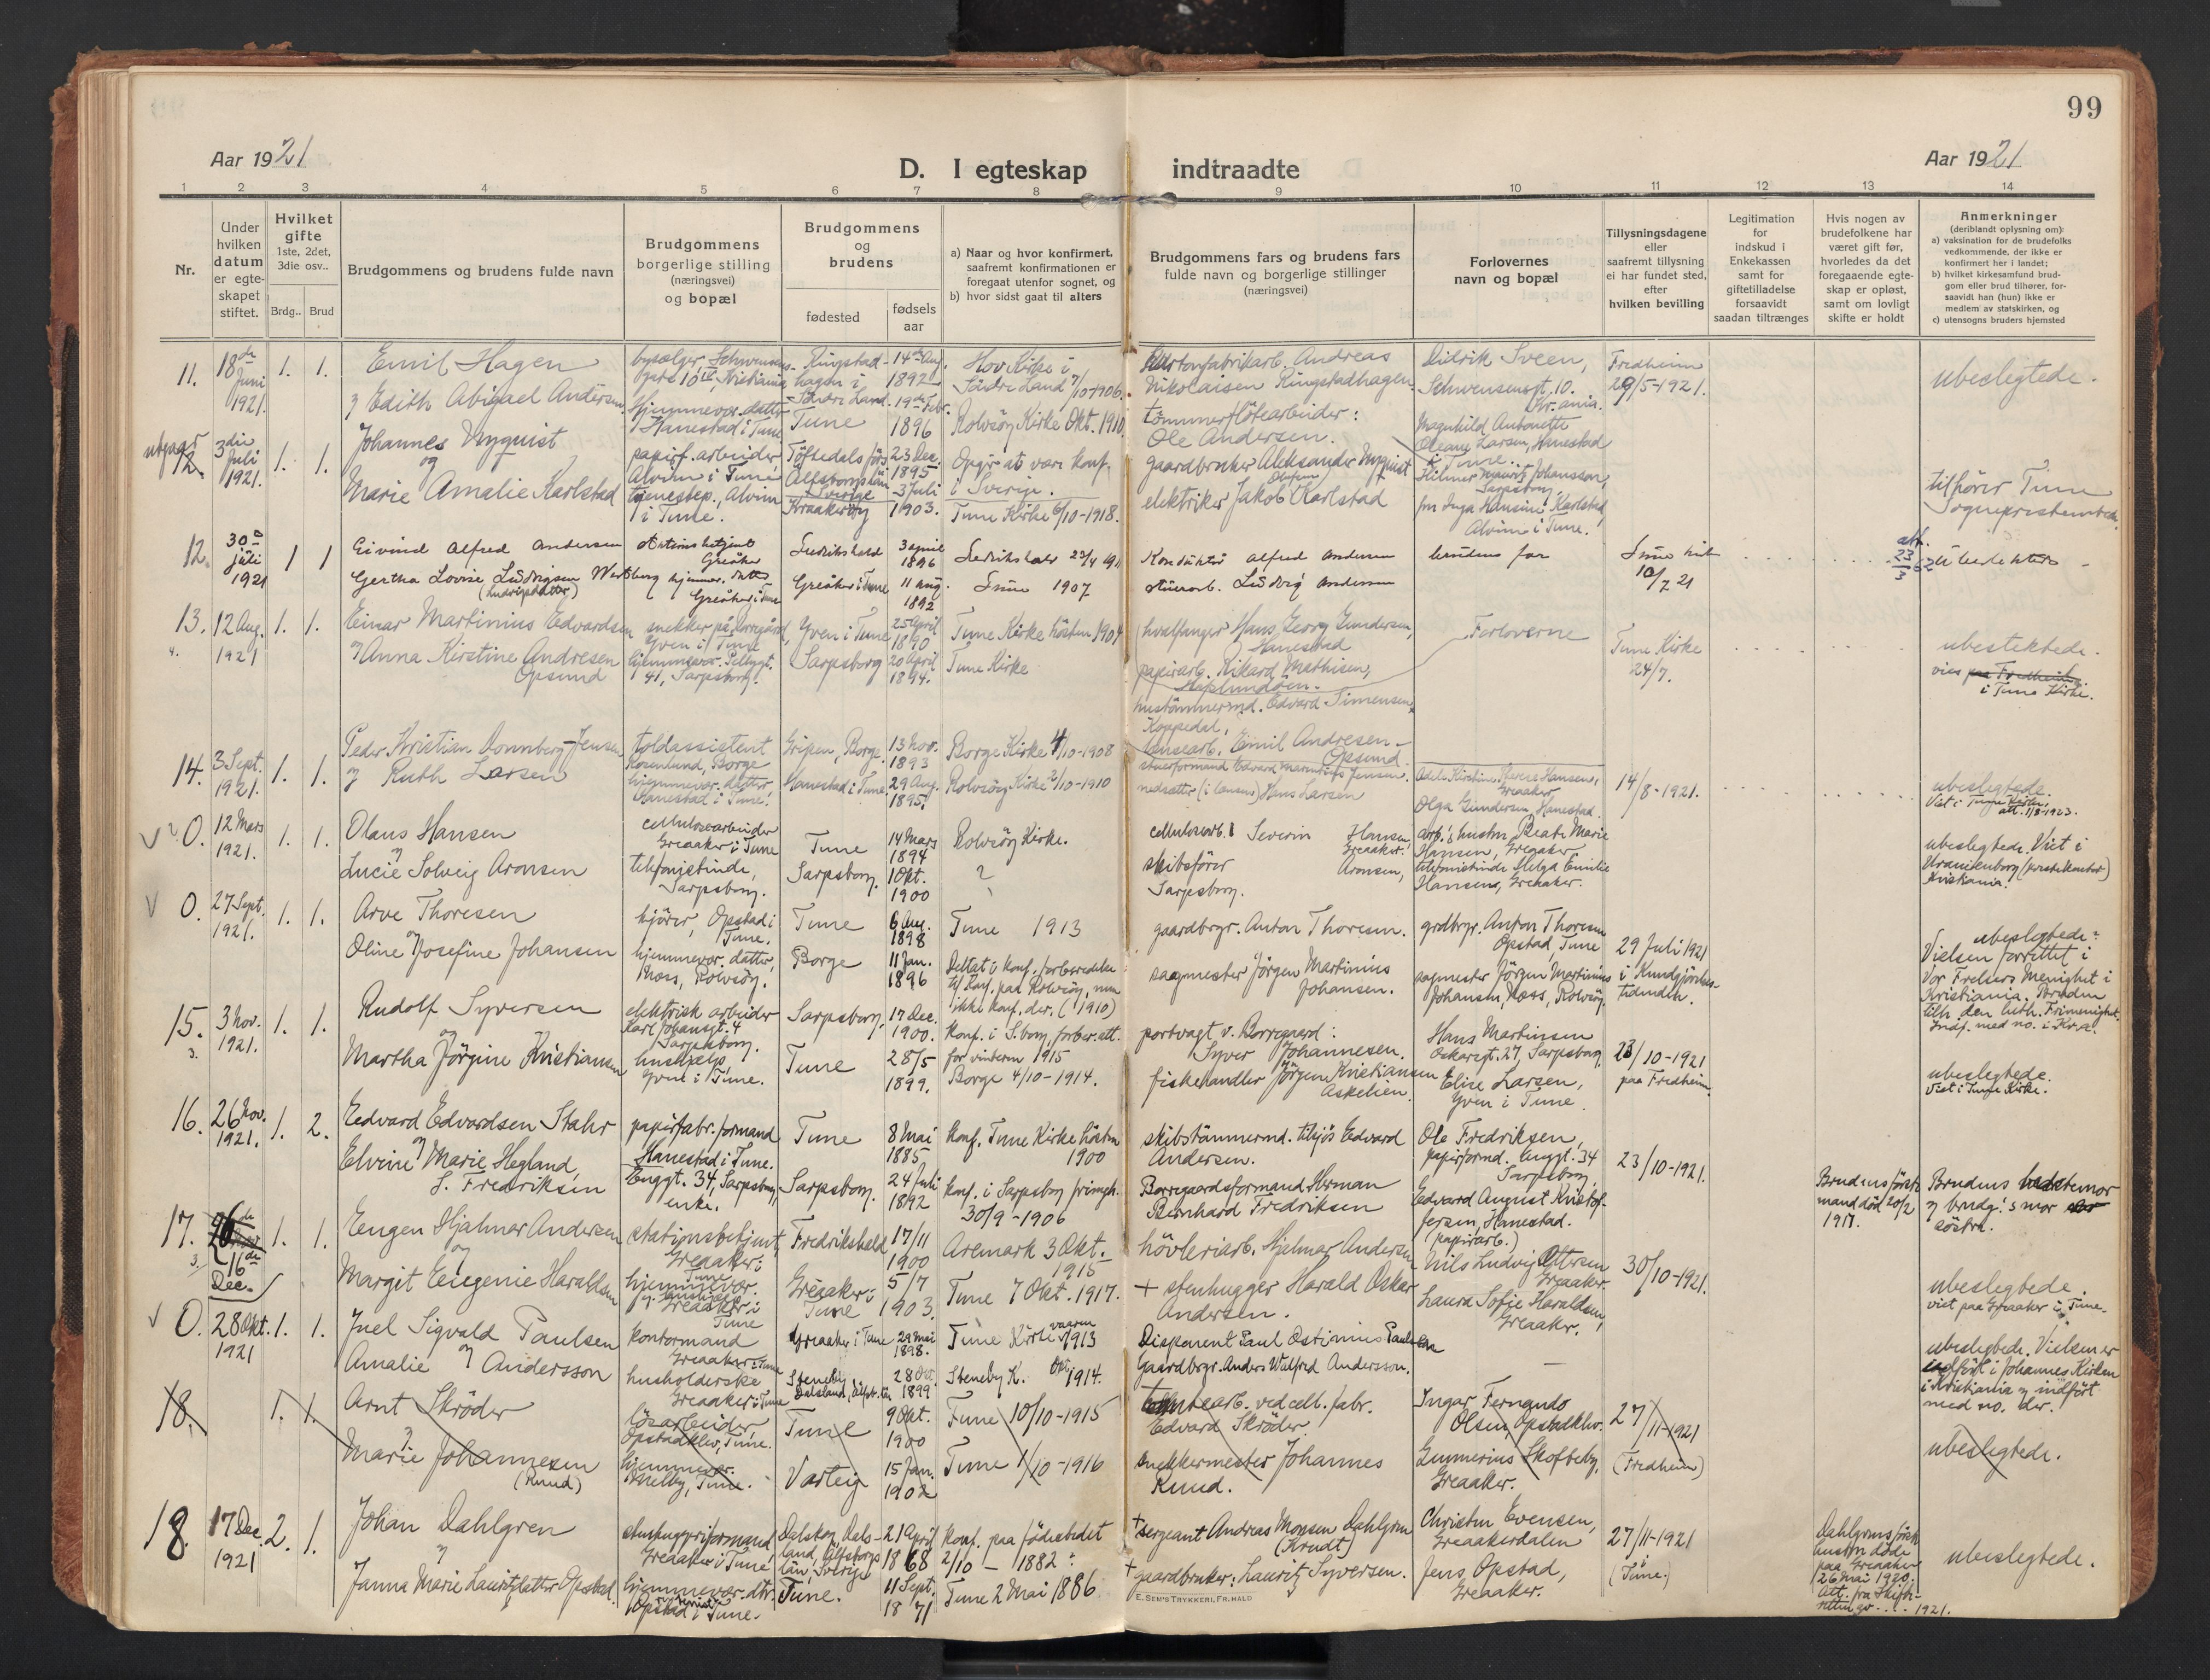 99
Aar 1921
D. I egteskap indtraadte
Aar 1921
1 2 3 4 5 6 7 8 9 10 11 12 13 14
Nr.
Under hvilken datum er egteskapet stiftet.
Hvilket gifte 1ste, 2det, 3die osv..
Brdg.. Brud
Brudgommens og brudens fulde navn
Brudgommens borgerlige stilling (næringsvei) og bopæl
Brudgommens og brudens
fødested
fødsels aar
a) Naar og hvor konfirmert, saafremt konfirmationen er foregaat utenfor sognet, og
b) hvor sidst gaat til alters
Brudgommens fars og brudens fars fulde navn og borgerlige stillinger (næringsvei)
Forlovernes navn og bopæl
Tillysningsdagene eller saafremt tillysning ei har fundet sted, efter hvilken bevilling
Legitimation for indskud i Enkekassen samt for giftetilladelse forsaavidt saadan tiltrænges
Hvis nogen av brudefolkene har været gift før, hvorledes da det foregaaende egteskap er opløst, samt om lovligt skifte er holdt
Anmerkninger (deriblandt oplysning om):
a) vaksination for de brudefolks vedkommende, der ikke er konfirmert her i landet;
b) hvilket kirkesamfund brudgom eller brud tilhører, forsaavidt han (hun) ikke er medlem av statskirken, og
c) utensogns bruders hjemsted
11. 18de Juni 1921. 1. 1.
Emil Hagen
og Edith Abigael Andersen
Hjemmevær. datter Hanestad i Tune
Ringstadhagen i Søndre Land.
14de Aug. 1892
Tune
19de Febr. 1896
Hov Kirke i Søndre Land 7/10-1906.
Rolvsøy Kirke Okt. 1910.
Kartonfabrikarb. Andreas Nikolaisen Ringstadhagen
tømmerfløtearbeider:
Ole Andersen.
Didrik Sveen,
Schwensensgt. 10. Kr.ania.
Magnhild Antonette Oleane Larsen, Hanestad i Tune.
Fredheim
29/5-1921.
ubeslegtede.
utgaar
12. 3die Juli 1921. 1. 1.
Johannes Nyquist
og
Marie Amalie Karlstad
papirf. arbeider Alvim i Tune
tjenestep., Alvim i Tune.
Tøftedals
Sverige
23 Dec. 1895
Kraakerøy
3 Juli 1903.
Opgir at være konf. i Sverige.
Tune Kirke 6/10-1918.
gaardbruker Aleksander Nyquist
elektriker Jakob Karlstad
Hilmer Johansson, Sarpsborg
fru Inga Hansine Karlstad, Alvim i Tune.
tilhører Tune Sogneprestembede.
12. 30te juli 1921 1 1
Eivind Alfred Andersen
Gertha Lovise Ludvigsen Westberg
(Ludvigsdatter)
Greåker
hjemmev. datter Greåker i Tune
Fredrikshald
3 april 1896
Greåker i Tune
11 aug. 1892
Tune 1907
Konduktør Alfred Andersen
stuerarb. Ludvig Andersen
brudens far
Tune kirke
10/7 21
13. 12 Aug. 1921 1. 1.
Einar Martinius Edvardsen
og Anna Kirstine Andresen
Opsund
snekker på Borregård, Yven i Tune
hjemmevær. Pellygt. 41, Sarpsborg.
Yven i Tune
25 April 1890
Sarpsborg
20 April 1894.
Tune Kirke høsten 1904
Tune Kirke
hvalfanger Hans Georg Gundersen, Hanestad
papirarb. Rikard Mathisen,
hustømmermd. Edvard Simensen, Koppedal,
lænsearb. Emil Andresen - Opsund.
Forloverne
Tune Kirke
24/7.
vies paa Fredheim.
i Tune Kirke.
14. 3 Sept. 1921. 1. 1.
Peder Kristian Donnberg-Jensen
og Ruth Larsen
toldassistent
Rosenlund, Borge
hjemmevær. datter, Hanestad i Tune.
Gripen, Borge.
13 Nov. 1893
Hanestad i Tune
29 Aug. 1895
Borge Kirke 4/10-1908
Rolvsøy Kirke 2/10-1910
stuerformand Edvard Marentius Jensen.
nedsætter (i lænsen) Hans Larsen
Olga Gundersen, Hanestad.
14/8-1921.
ubeslegtede.
Viet i Tune Kirke.
att. 1/8-1923.
0. 12 Mars 1921. 1. 1.
Olaus Hansen
og
Lucie Solveig Aronsen
cellulosearbeider Greaaker i Tune
telefonistinde, Sarpsborg.
Tune
14 Mars 1894
Sarpsborg.
1 Okt. 1900
Rolvsøy Kirke.
?
cellulosearb. Severin Hansen, Greaaker.
skibsfører Aronsen, Sarpsborg.
arb.'s hustru Beate Marie Hansen, Greaaker
telefonistinde Helga Emilie Hansen, Greaaker.
ubeslegtede. Viet i Uranienborg (prestekontor) Kristiania.
0. 27 Sept. 1921. 1. 1.
Arve Thoresen
og
Oline Josefine Johansen
kjører, Opstad i Tune.
hjemmevær. datter, Moss, Rolvsøy.
Tune
6 Aug. 1898
Borge
11 Jan. 1896
Tune 1913
Deltat i konf. forberedelse til konf. paa Rolvsøy, men ikke konf. der. (1910)
gaardbrgr. Anton Thoresen.
sagmester Jørgen Martinius Johansen.
grdbrgr. Anton Thoresen Opstad, Tune
sagmester Jørgen Martinius Johansen, Moss, Rolvsøy.
29 Juli 1921
i Kundgjørelsestidenden.
ubeslegtede.
Vielsen forrettet i Vor Frelsers Menighet i Kristiania. Bruden tilh. den luth. Frimenighet. Indf. med no. i Kr.a.
15. 3 Nov. 1921. 1. 1.
Rudolf Syversen
og
Martha Jørgine Kristiansen
elektrisk arbeider
Karl Johansgt. 4 Sarpsborg.
hushjelp Yven i Tune.
Sarpsborg.
17 Dec. 1900.
Tune
28/5 1899.
konf. i S.borg, forber. att. for vinteren 1915
Borge 4/10-1914.
portvagt v. Borregaard:
Syver Johannesen.
fiskehandler Jørgen Kristiansen Askelien.
Hans Martinsen
Oskarsgt. 27, Sarpsborg.
Elise Larsen, Yven i Tune.
23/10-1921
paa Fredheim.
ubeslegtede.
Viet i Tune Kirke.
16. 26 Nov. 1921. 1. 2.
Edvard Edvardsen Stahr
og
Elvine Marie Hegland,
f. Fredriksen
papirfabr. formand
Hanestad i Tune.
Enggt. 34, Sarpsborg, enke.
Tune
8 Mai 1885
Sarpsborg.
24 Juli 1892
konf. Tune Kirke høsten 1900
konf. i Sarpsborg
30/9-1906
skibstømmermd. tilsjøs Edvard Andersen.
Borregaardsformand Herman Bernhard Fredriksen
Ole Fredriksen, papirformd. Enggt. 34 Sarpsborg,
Edvard August Kristoffersen, Hanestad.
(papirarb.)
23/10-1921.
Brudens første mand død 20/2 1917.
Brudens bestemor og brudg.'s mor søstre.
17. 16de Dec. 1. 1.
Eugen Hjalmar Andersen
og
Margit Eugenie Haraldsen
stationsbetjent, Greaaker i Tune
Greaaker i Tune
Fredrikshald
17/11 1900
Greaaker i Tune
5/7 1903.
Aremark 3 Okt. 1915
Tune 7 Okt. 1917.
høvleriarb. Hjalmar Andersen
+ stenhugger Harald Oskar Andersen.
Nils Ludvig Ottersen Greaaker.
Laura Sofie Haraldsen, Greaaker.
30/10-1921.
ubeslegtede.
viet paa Greaaker i Tune.
0. 28 Okt. 1921 1. 1.
Juel Sigvald Paulsen
og
Amalie Andersson
kontormand Greaaker i Tune
husholderske Greaaker i Tune
Greaaker i Tune
29 Mai 1898.
Steneby Dalsland,
1899
Tune Kirke vaaren 1913
Steneby K. Okt. 1914.
Disponent Paul Ostinius Paulsen
Gaardbrgr. Anders Walfred Andersson.
—
ubeslegtede. Vielsen er utført i Johannes Kirken i Kristiania og indført med no. der.
18. 1. 1.
Arnt Skrøder
og
Marie Johannesen
(Ruud)
løsarbeider, Opstadklev, Tune.
hjemmevær. Tune.
Tune
9 Okt. 1900
Varteig
15 Jan. 1902
Tune 10/10-1915
Tune 1/10-1916
ved cell. fabr.
Edvard Skrøder.
snekkermester Johannes Ruud.
Ingar Fernando Olsen, Opstadklev.
Gunnerius Skofteby, Greaaker.
27/11-1921
(Fredheim)
ubeslegtede.
18. 17 Dec. 1921 2. 1.
Johan Dahlgren
og
Janna Marie Lauritzdatter Opstad.
stenhuggeriformand, Greaaker i Tune
hjemmevær. dtr. Opstad i Tune.
Dalskog, Dalsland, Elfsborgs län, Sverige
21 April 1868
Tune.
11 Sept. 1871
konf. paa fødestedet 2/10-1882
Tune 2 Mai 1886
+ sergeant Andreas Monsen Dahlgren (Krudt)
+ gaardbruker: Lauritz Syversen.
Christen Evensen, Greaakerdalen
Jens Opstad, Greaaker.
27/11-1921
(i Tune.)
Dahlgrens første hustru døde paa Greaaker 26 Mai 1920.
Att. fra Skifteretten av .... 1921.
ubeslegtede.
E. SEM'S TRYKKERI, FR.HALD